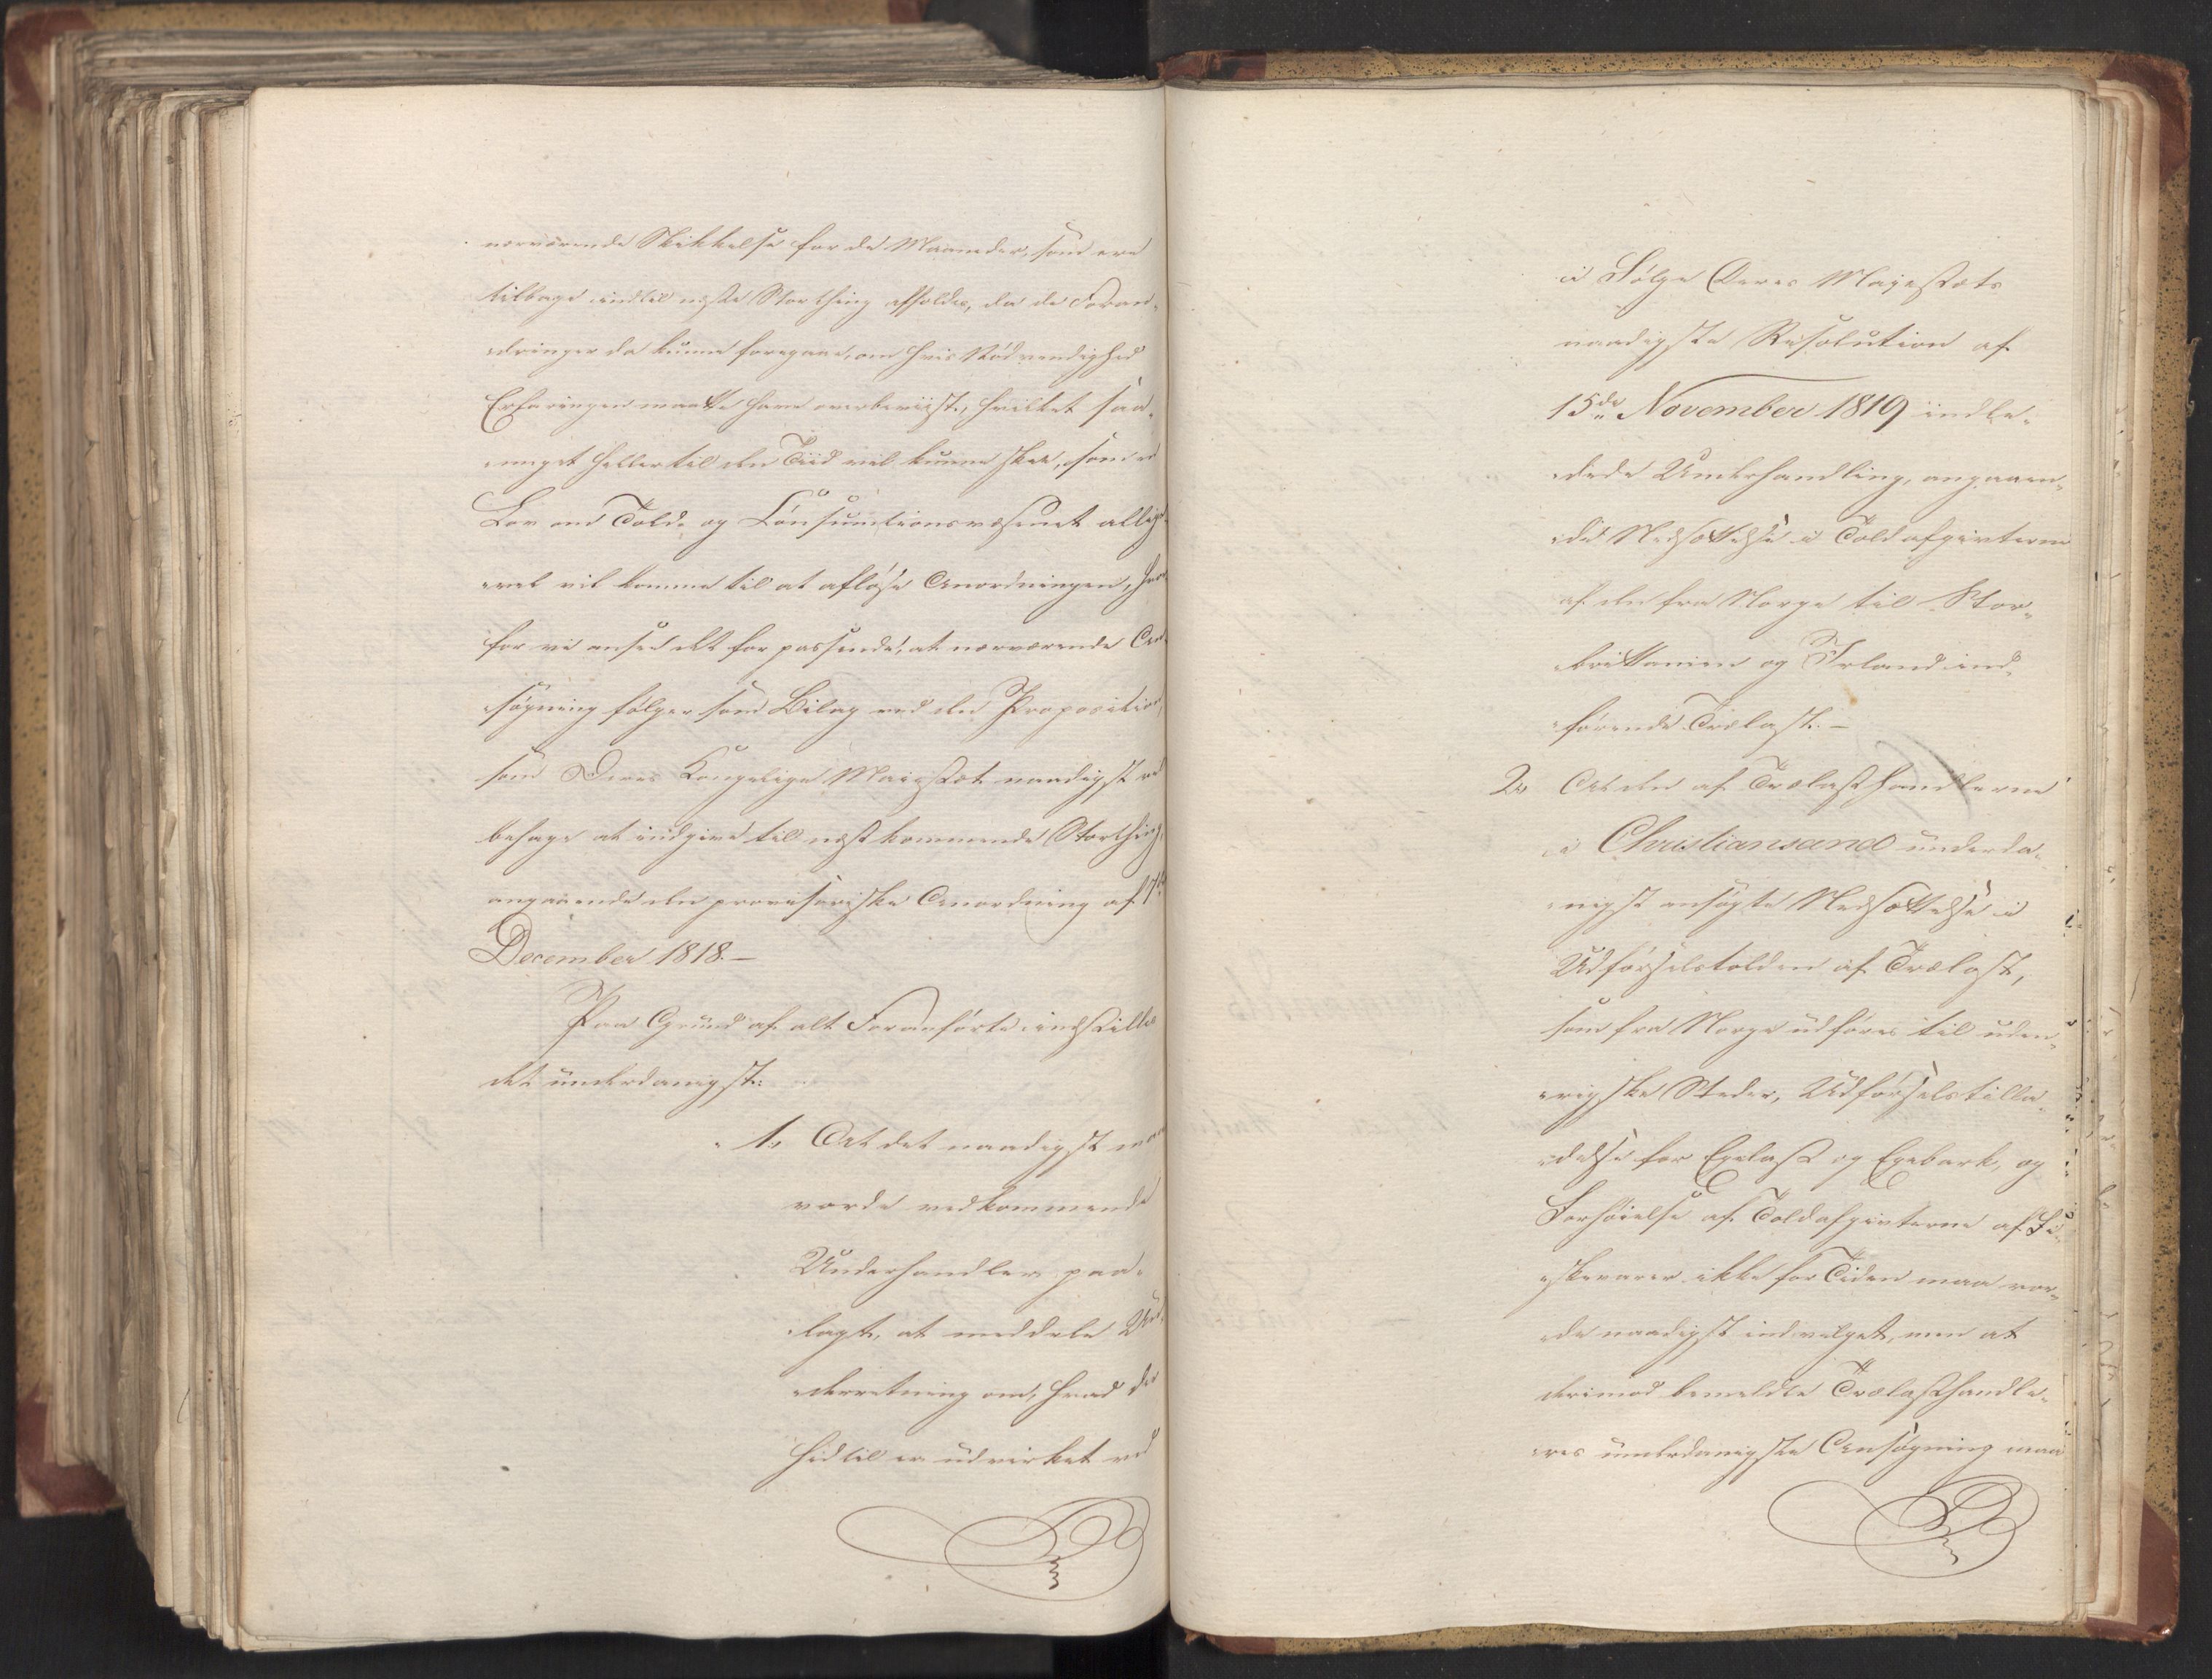 nærværende Skikkelse for de Maaneder, som ere
tilbage indtil næste Storthing afholdes, da de Foran-
dringer da kunne foregaae, om hvis Nødvendighed
Erfaringen maatte have overbeviist, hvilket saa-
meget heller til den Tiid vil kunne skee, som en
Lov om Told- og Consumtionsvæsenet allige-
vel vil komme til at afløse Anordningen, hvor-
for vi ansee det for passende, at nærværende An-
søgning følger som Bilag ved den Proposition,
som Deres Kongelige Majestæt naadigst vil
behage at indgive til næstkommende Storthing,
angaaende den provisoriske Anordning af 17de
December 1818.—
Paa Grund af alt Foranførte indstilles
det underdanigst:
1, At det naadigst maa
vorde vedkommende
Underhandler paa-
lagt, at meddele Un-
derretning om, hvad der
hidtil er udvirket ved
i Følge Deres Majestæts
naadigste Resolution af
15de November 1819 indle-
dede Underhandling, angaaen-
de Nedsættelse i Toldafgivterne
af den fra Norge til Stor-
brittanien og Irland ind-
førende Trælast.—
2, At den af Trælasthandlerne
i Christiansand underda-
nigst ansøgte Nedsættelse i
Udførselstolden af Trælast,
som fra Norge udføres til uden-
rigske Steder, Udførselstilla-
delse for Egelast og Egebark, og
Forhøielse af Toldafgivterne af Fi-
skevarer ikke for Tiden maa vor-
de naadigst indvilget, men at
derimod bemeldte Trælasthandle-
res underdanigste Ansøgning maa